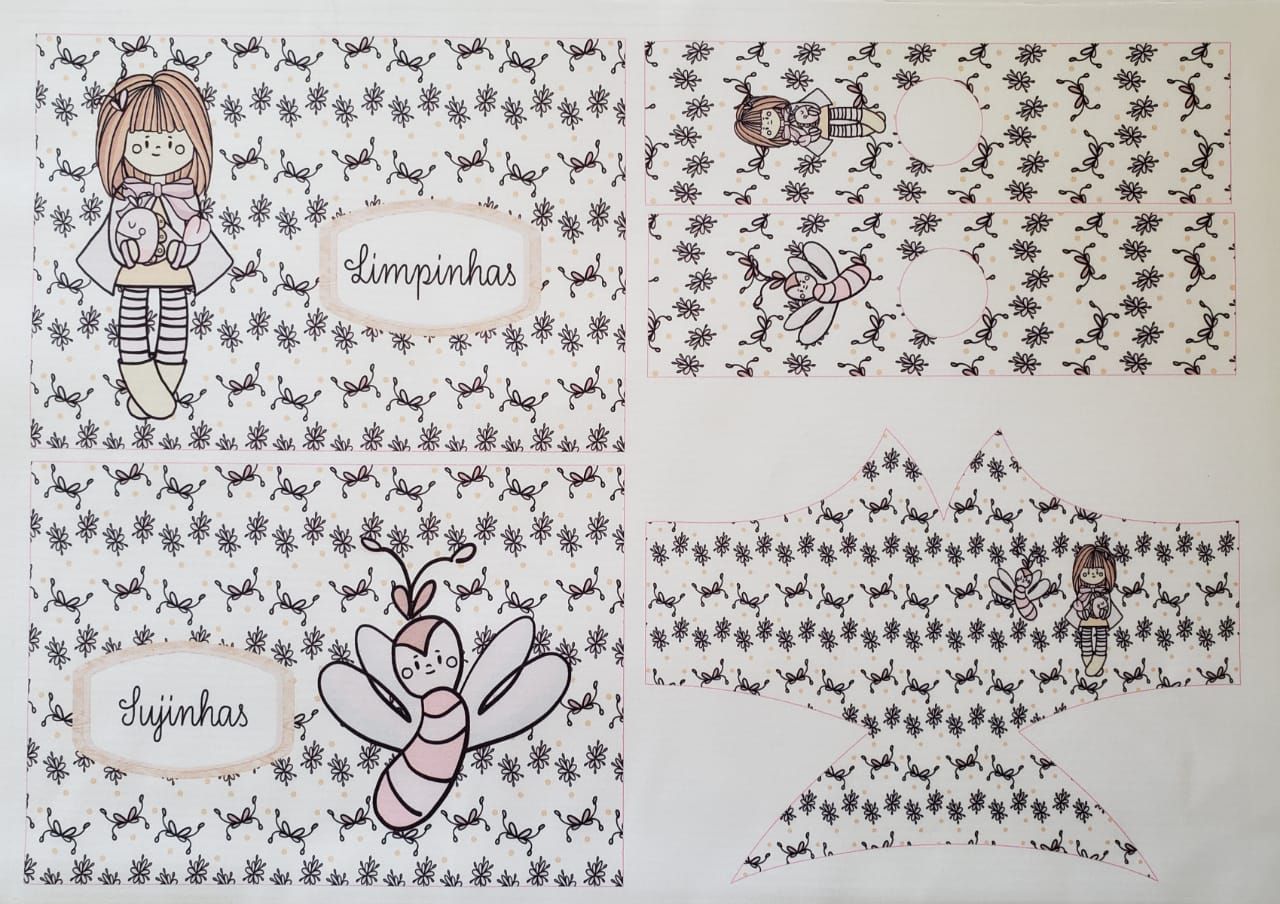 Limpinhas
Sujinhas